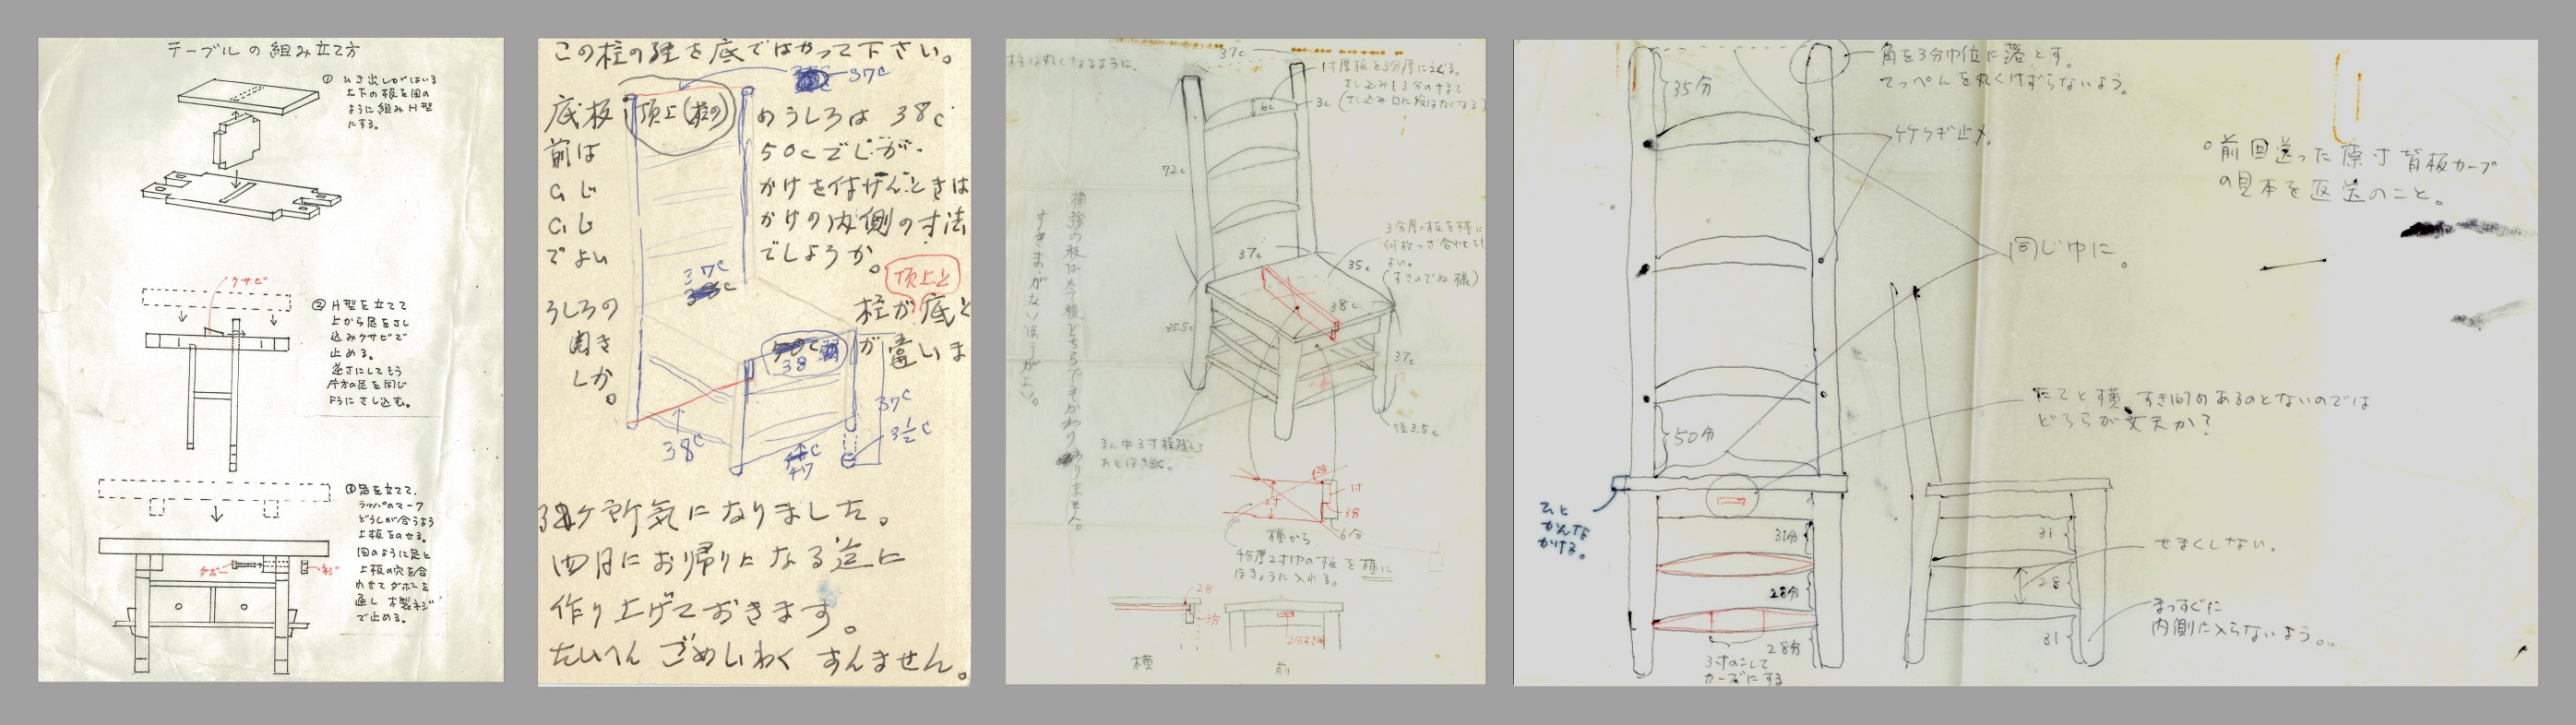 テーブルの組み立て方
① ひき出しがはいる
上下の板を図の
ように組みH型
にする。
クサビ
② H型を立てて
上から足をさし
込みクサビで
止める。
逆さにしてもう
片方の足を同じ
ようにさし込む。
③ 足を立てて、
ラッパのマーク
どうしが合うよう
上板をのせる。
図のように足と
上板の穴を合
わせてダボーを
通し 木製ネジ
で止める。
ダボー
ネジ
この柱の経を底ではかって下さい。
37c
底板 頂上(柱の) のうしろは 38c
前は 50cでしが、
かけを付けんときは
かけの内側の寸法
でよい でしょうか。
37c
頂上と
うしろの 柱が底と
開き が違いま
しか。
38
37c
3½c
38c
3ヶ所気になりました。
四月にお帰りになる迄に
作り上げておきます。
たいへん ごめいわく すんません。
柱は丸くなるように。
37c
3c
6c
72c
37c
35c
38c
35.5c
37c
径3.5c
3分厚の板を横に
何枚つぎ合わせても
よい。
(すきのでぬ様)
補強の板はたて横どちらでもかわりありません。
すきまがないほうがよい。
まん中3寸程残して
あとは細く。
2分
1寸
3分
6分
横から
4分厚2寸巾の板を横に
ほきょうに入れる。
2分
3分
横
前
角を3分巾位に落とす。
てっぺんを丸くけずらないよう。
35分
クギ止メ。
○前回送った原寸背板カーブ
の見本を返送のこと。
同じ巾に。
たてと横、すき間のあるのとないのでは
どちらが丈夫か?
50分
ひと
かんな
かける。
31分
28分
28分
3寸のこして
カーブにする
31
28
31
せまくしない。
まっすぐに
内側に入らないよう。